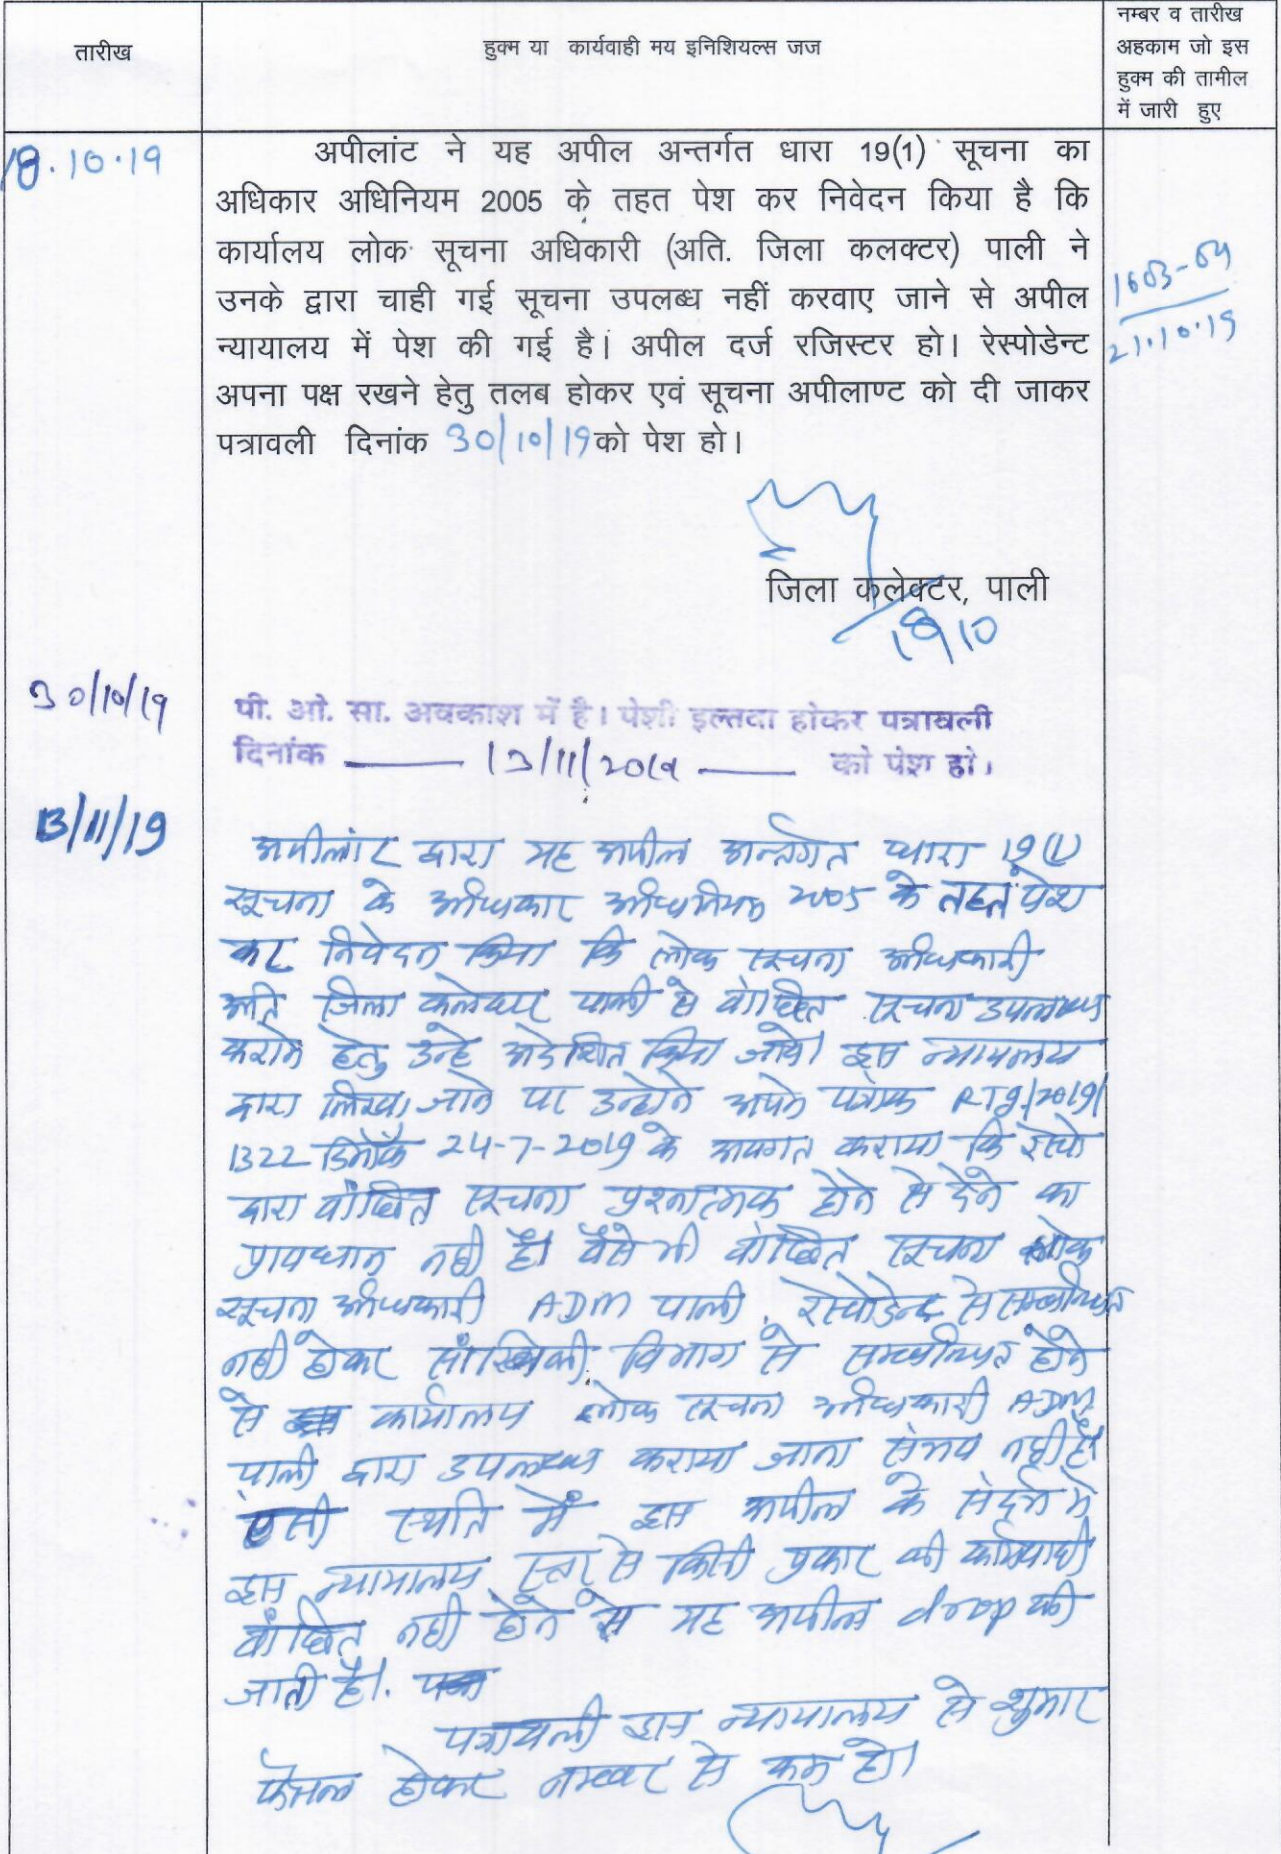 तारीख
हुक्म या कार्यवाही मय इनिशियल्स जज
नम्बर व तारीख
अहकाम जो इस
हुक्म की तामील
में जारी हुए
18.10.19
अपीलांट ने यह अपील अन्तर्गत धारा 19(1) सूचना का
अधिकार अधिनियम 2005 के तहत पेश कर निवेदन किया है कि
कार्यालय लोक सूचना अधिकारी (अति. जिला कलक्टर) पाली ने
उनके द्वारा चाही गई सूचना उपलब्ध नहीं करवाए जाने से अपील
न्यायालय में पेश की गई है। अपील दर्ज रजिस्टर हो। रेस्पोडेन्ट
अपना पक्ष रखने हेतु तलब होकर एवं सूचना अपीलाण्ट को दी जाकर
पत्रावली दिनांक 30/10/19 को पेश हो।
1603-04
21.10.19
जिला कलेक्टर, पाली
18/10
30/10/19
पी. ओ. सा. अवकाश में है। पेशी इल्तवा होकर पत्रावली
दिनांक 13/11/2019 को पेश हो।
13/11/19
अपीलांट द्वारा यह अपील अर्न्तगत धारा 19(1)
सूचना के अधिकार अधिनियम 2005 के तहत पेश
कर निवेदन किया कि लोक सूचना अधिकारी
अति जिला कलेक्टर पाली से वांछित सूचना उपलब्ध
कराने हेतु उन्हे आदेशित किया जावे। इस न्यायालय
द्वारा लिखा जाने पर उन्होने अपने पत्रांक RTI/2019/
1322 दिनांक 24-7-2019 के अवगत कराया कि रेस्पो
द्वारा वांछित सूचना प्रश्नात्मक होने से देने का
प्रावधान नही है। वैसे भी वांछित सूचना लोक
सूचना अधिकारी ADM पाली, रेस्पोडेन्ट से सम्बन्धित
नही होकर सांख्यिकी विभाग से सम्बन्धित होने
से कार्यालय लोक सूचना अधिकारी ADM
पाली द्वारा उपलब्ध कराया जाना संभव नही है।
एसी स्थति में इस अपील के संदर्भ मे
इस न्यायालय स्तर से किसी प्रकार की कार्यवाही
वांछित नही होने से यह अपील drop की
जाती है।
पत्रावली इस न्यायालय से शुमार
फैसल होकर नम्बर से कम हो।